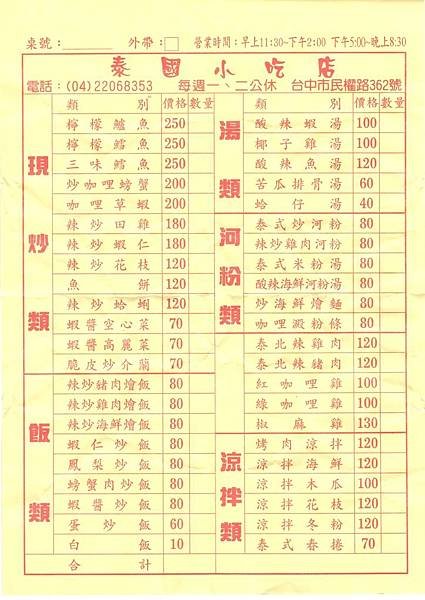 桌號： 外帶： 營業時間：早上11:30~下午2:00 下午5:00~晚上8:30
泰國小吃店
電話：(04)22068353 每週一、二公休 台中市民權路362號
類別 價格 數量
現炒類
檸檬鱸魚 250
檸檬鱈魚 250
三味鱈魚 250
炒咖哩螃蟹 200
咖哩草蝦 200
辣炒田雞 180
辣炒蝦仁 180
辣炒花枝 120
魚餅 120
辣炒蛤蜊 120
蝦醬空心菜 70
蝦醬高麗菜 70
脆皮炒介蘭 70
飯類
辣炒豬肉燴飯 80
辣炒雞肉燴飯 80
辣炒海鮮燴飯 80
蝦仁炒飯 80
鳳梨炒飯 80
螃蟹肉炒飯 80
蝦醬炒飯 80
蛋炒飯 60
白飯 10
合計
類別 價格 數量
湯類
酸辣蝦湯 100
椰子雞湯 100
酸辣魚湯 120
苦瓜排骨湯 60
蛤仔湯 40
河粉類
泰式炒河粉 80
辣炒雞肉河粉 80
泰式米粉湯 80
酸辣海鮮河粉湯 80
炒海鮮燴麵 80
咖哩澱粉條 80
泰北辣雞肉 120
泰北辣豬肉 120
紅咖哩雞 100
綠咖哩雞 100
椒麻雞 130
涼拌類
烤肉涼拌 120
涼拌海鮮 120
涼拌木瓜 100
涼拌花枝 120
涼拌冬粉 120
泰式春捲 70